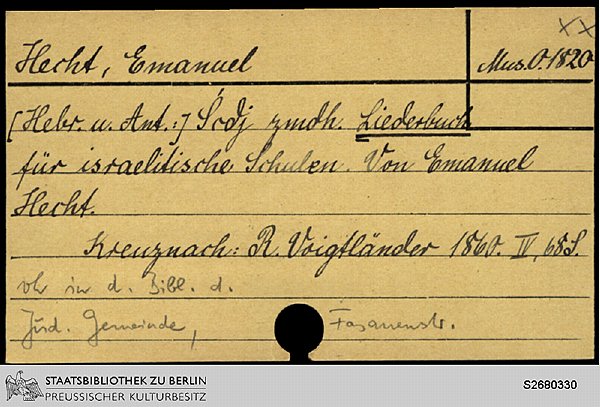 xx
Hecht, Emanuel
Mus.O.1820
[Hebr. u. Ant.:] zmdh. Liederbuch
für israelitische Schulen. Von Emanuel
Hecht.
Kreuznach: R. Voigtländer 1860. IV, 68 S.
in d. Bibl. d.
Jüd. Gemeinde, Fasanenstr.
STAATSBIBLIOTHEK ZU BERLIN
PREUSSISCHER KULTURBESITZ
S2680330